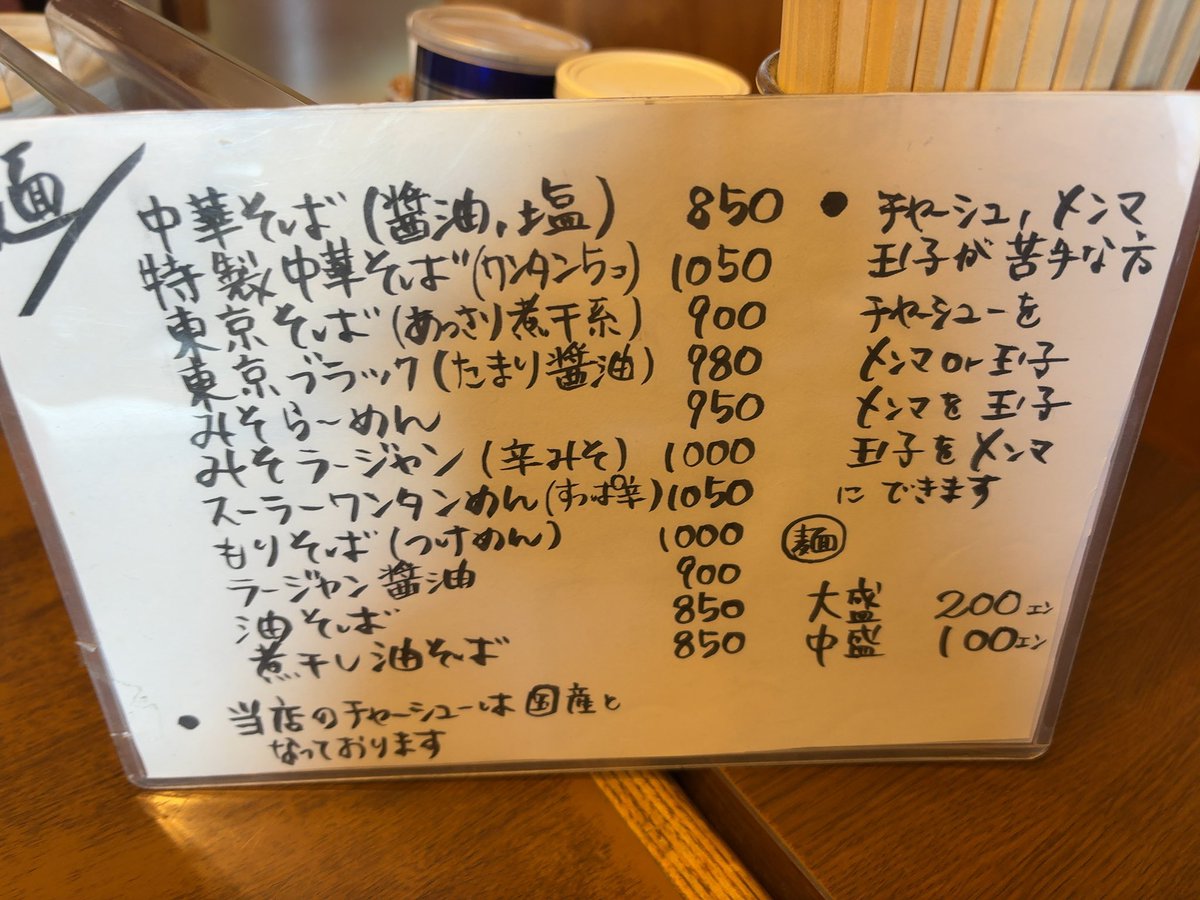 麺
中華そば(醤油,塩) 850
特製中華そば(ワンタン5コ) 1050
東京そば(あっさり煮干系) 900
東京ブラック(たまり醤油) 980
みそらーめん 950
みそラージャン(辛みそ) 1000
スーラーワンタンめん(すっぱ辛) 1050
もりそば(つけめん) 1000
ラージャン醤油 900
油そば 850
煮干し油そば 850
● 当店のチャーシューは国産と
なっております
● チャーシュ,メンマ
玉子が苦手な方
チャーシューを
メンマor玉子
メンマを玉子
玉子をメンマ
にできます
麺
大盛 200エン
中盛 100エン